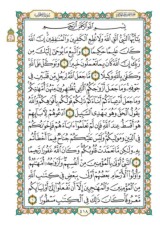 بِسْمِ اللَّهِ الرَّحْمَٰنِ الرَّحِيمِ
يَا أَيُّهَا النَّبِيُّ اتَّقِ اللَّهَ وَلَا تُطِعِ الْكَافِرِينَ وَالْمُنَافِقِينَ إِنَّ اللَّهَ
كَانَ عَلِيمًا حَكِيمًا ١ وَاتَّبِعْ مَا يُوحَىٰ إِلَيْكَ مِن
رَّبِّكَ إِنَّ اللَّهَ كَانَ بِمَا تَعْمَلُونَ خَبِيرًا ٢ وَتَوَكَّلْ عَلَى اللَّهِ
وَكَفَىٰ بِاللَّهِ وَكِيلًا ٣ مَّا جَعَلَ اللَّهُ لِرَجُلٍ مِّن قَلْبَيْنِ فِي
جَوْفِهِ وَمَا جَعَلَ أَزْوَاجَكُمُ اللَّائِي تُظَاهِرُونَ مِنْهُنَّ أُمَّهَاتِكُمْ
وَمَا جَعَلَ أَدْعِيَاءَكُمْ أَبْنَاءَكُمْ ذَٰلِكُمْ قَوْلُكُم بِأَفْوَاهِكُمْ
وَاللَّهُ يَقُولُ الْحَقَّ وَهُوَ يَهْدِي السَّبِيلَ ٤ ادْعُوهُمْ لِآبَائِهِمْ
هُوَ أَقْسَطُ عِندَ اللَّهِ فَإِن لَّمْ تَعْلَمُوا آبَاءَهُمْ فَإِخْوَانُكُمْ
فِي الدِّينِ وَمَوَالِيكُمْ وَلَيْسَ عَلَيْكُمْ جُنَاحٌ فِيمَا أَخْطَأْتُم
بِهِ وَلَٰكِن مَّا تَعَمَّدَتْ قُلُوبُكُمْ وَكَانَ اللَّهُ غَفُورًا رَّحِيمًا
٥ النَّبِيُّ أَوْلَىٰ بِالْمُؤْمِنِينَ مِنْ أَنفُسِهِمْ وَأَزْوَاجُهُ أُمَّهَاتُهُمْ
وَأُولُو الْأَرْحَامِ بَعْضُهُمْ أَوْلَىٰ بِبَعْضٍ فِي كِتَابِ اللَّهِ
مِنَ الْمُؤْمِنِينَ وَالْمُهَاجِرِينَ إِلَّا أَن تَفْعَلُوا إِلَىٰ أَوْلِيَائِكُم
مَّعْرُوفًا كَانَ ذَٰلِكَ فِي الْكِتَابِ مَسْطُورًا ٦
٤١٨